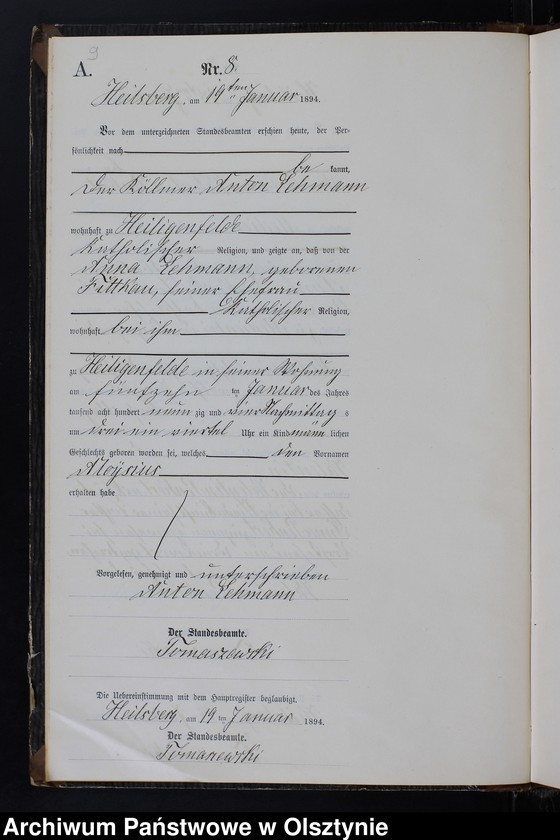 9
A.
Nr. 8.
Heilsberg, am 19ten Januar 1894.
Vor dem unterzeichneten Standesbeamten erschien heute, der Per-
sönlichkeit nach
be kannt,
Der Köllmer Anton Lehmann
wohnhaft zu Heiligenfelde
katholischer Religion, und zeigte an, daß von der
Anna Lehmann, geborenen
Fittkau, seiner Ehefrau
katholischer Religion,
wohnhaft bei ihm
zu Heiligenfelde in seiner Wohnung
am fünfzehn ten Januar des Jahres
tausend acht hundert neun zig und vier Nachmittag s
um drei ein viertel Uhr ein Kind männ lichen
Geschlechts geboren worden sei, welches den Vornamen
Aloysius
erhalten habe
Vorgelesen, genehmigt und unterschrieben
Anton Lehmann
Der Standesbeamte.
Tomaszewski
Die Uebereinstimmung mit dem Hauptregister beglaubigt.
Heilsberg, am 19 ten Januar 1894.
Der Standesbeamte.
Tomaszewski
Archiwum Państwowe w Olsztynie